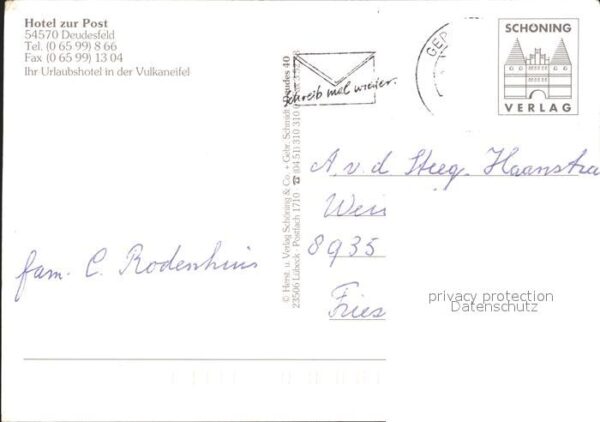 Hotel zur Post
54570 Deudesfeld
Tel. (0 65 99) 8 66
Fax (0 65 99) 13 04
Ihr Urlaubshotel in der Vulkaneifel
fam. C. Rodenhuis
© Herst. u. Verlag Schöning & Co. + Gebr. Schmidt
23506 Lübeck · Postfach 1710 ☎ (04 51) 310 310
Schreib mal wieder.
SCHÖNING
VERLAG
A. v. d Steeg. Haanstra
8935
Fries
privacy protection
Datenschutz